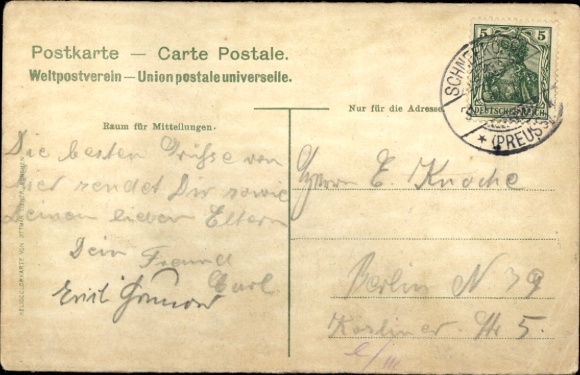 Postkarte — Carte Postale.
Weltpostverein — Union postale universelle.
Nur für die Adresse.
Raum für Mitteilungen.
5 5
DEUTSCHES REICH
(PREUSS
Die besten Grüsse von
hier sendet Dir sowie
Deinen lieben Eltern
Dein Freund
Carl
Herrn E. Knoche
Berlin N 39
Kösliner Str 5.